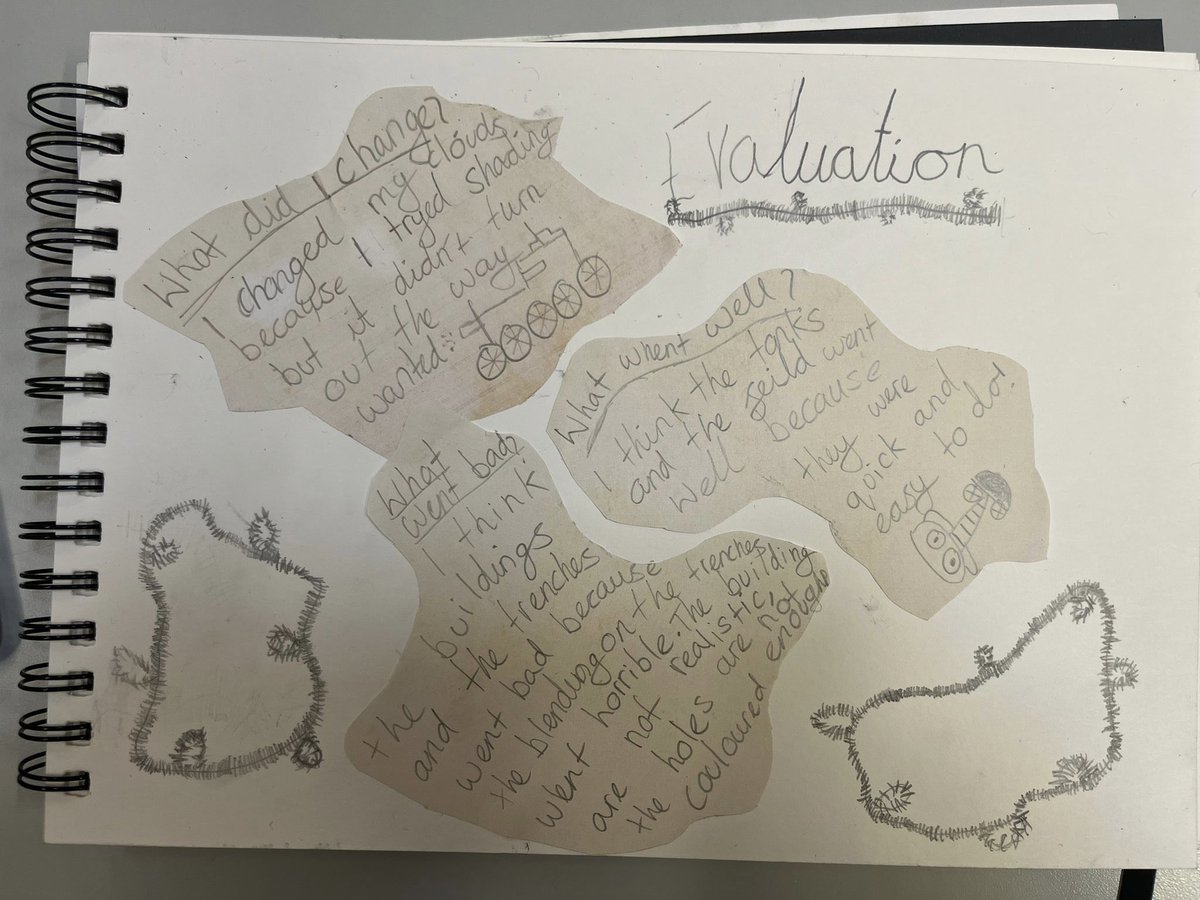 Evaluation
What did I change?
I changed my clouds
because I tryed shading
but it didn't turn
out the way
wanted.
What whent well?
I think the tanks
and the feild went
well because
they were
quick and
easy to do!
What
went bad?
I think
the buildings
and the trenches
went bad because
the blendingon the trenches
went horrible. The building
are not realistic,
the holes are not
couloured enough